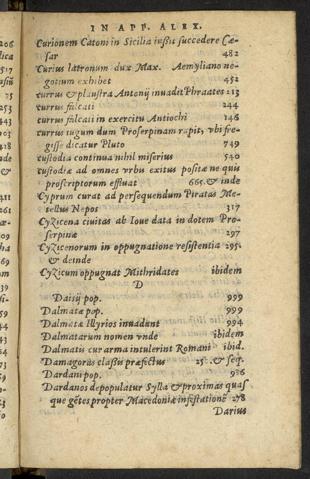 IN APP. ALEX.
Curionem Catoni in Sicilia iussit succedere Cæ-
sar 482
Curius latronum dux Max. Aemyliano ne-
gotium exhibet 452
currus & plaustra Antonij inuadit Phraates 213
currus falcati 244
currus falcati in exercitu Antiochi 146
currus iugum dum Proserpinam rapit, vbi fre-
gisse dicatur Pluto 749
custodia continua nihil miserius 540
custodiæ ad omnes vrbis exitus positæ ne quis
proscriptorum effluat 665. & inde
Cyprum curat ad persequendum Piratas Me-
tellus Nepos 317
Cyzicena ciuitas ab Ioue data in dotem Pro-
serpinæ 297
Cyzicenorum in oppugnatione resistentia 295.
& deinde
Cyzicum oppugnat Mithridates ibidem
D
Daisij pop. 999
Dalmatæ pop. 999
Dalmatæ Illyrios inuadunt 994
Dalmatarum nomen vnde ibidem
Dalmatis cur arma intulerint Romani ibid.
Damagoras classis præfectus & seq.
Dardani pop. 986
Dardanos depopulatur Sylla & proximas quas
que gētes propter Macedoniæ infestationē 278
Darius
206
517
25
253
443
103
418
523
411
261
193
443
335